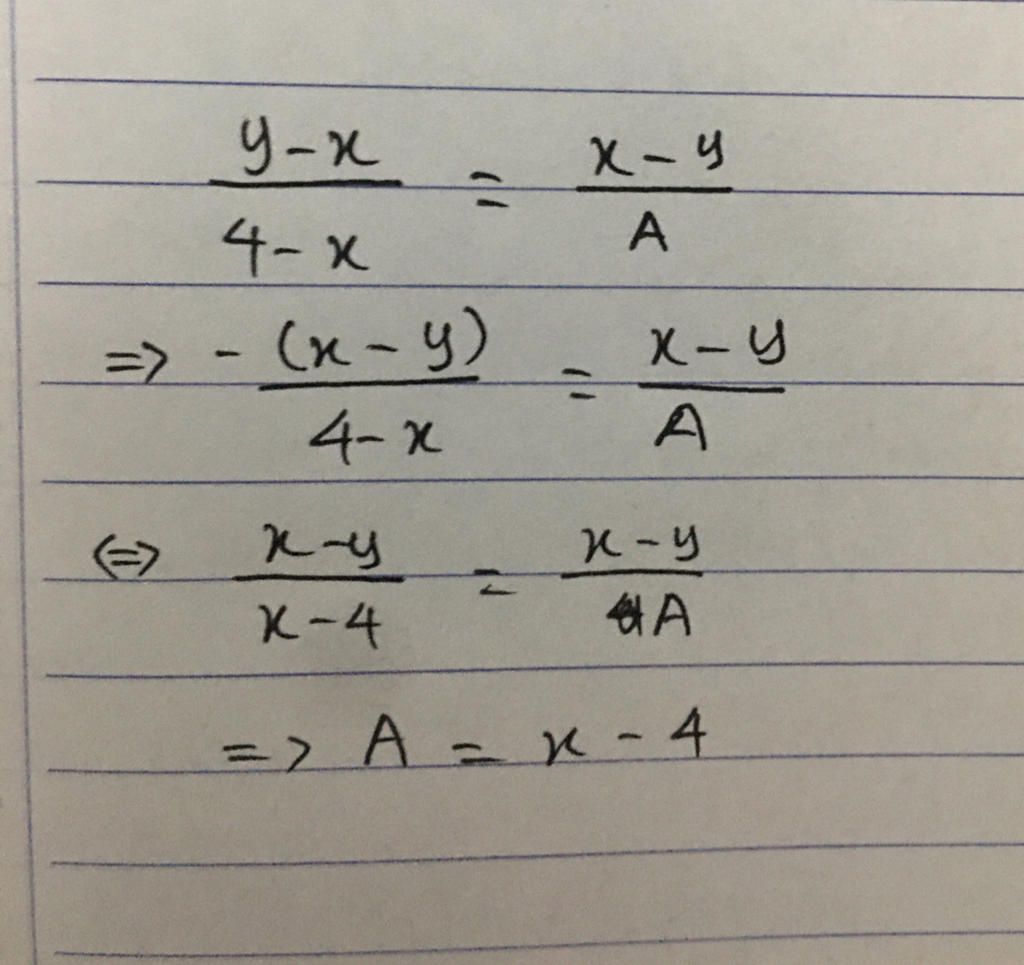 (y-x)/(4-x) = (x-y)/A
=> -(x-y)/(4-x) = (x-y)/A
<=> (x-y)/(x-4) = (x-y)/A
=> A = x-4